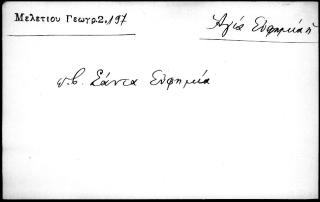 Μελετίου Γεωγρ.2,197
Ἁγία Εὐφημία ἡ
κ.β. Σάντα Εὐφημία